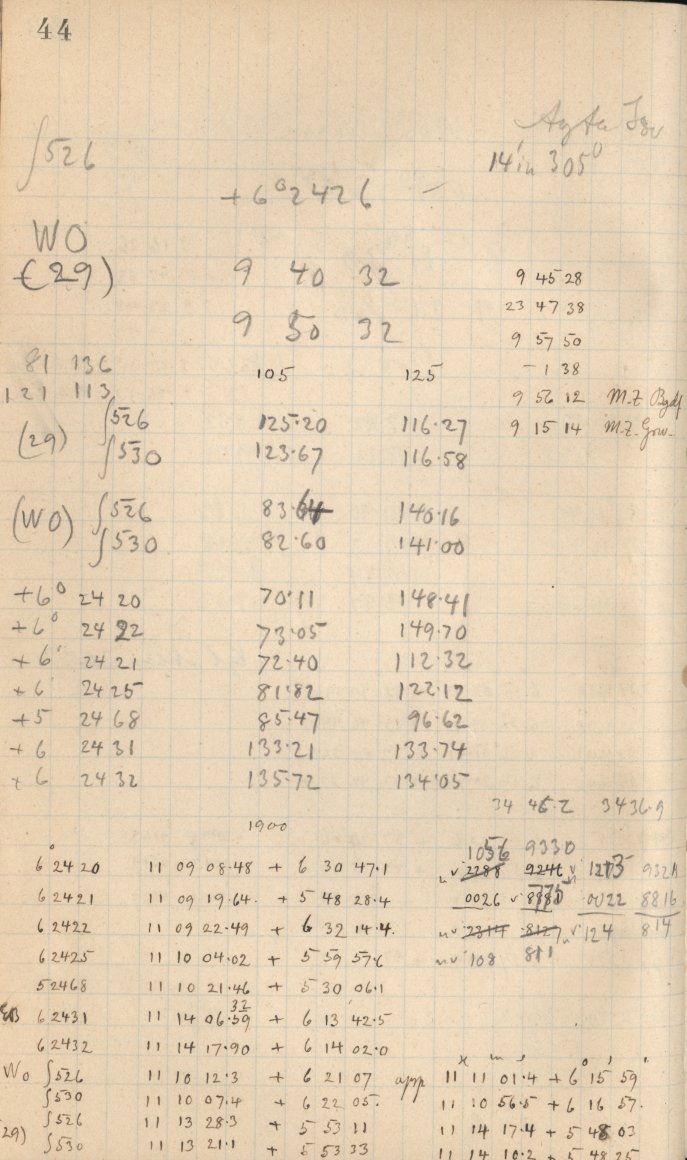 44
∫526
14' in 305°
+6° 2426 –
WO
(29) 9 40 32 9 45 28
23 47 38
9 50 32 9 57 50
81 136 105 125 – 1 38
121 113 9 56 12 M.Z.
∫526 125·20 116·27 9 15 14 M.Z.
(29) ∫530 123·67 116·58
(WO) ∫526 83·64 140·16
∫530 82·60 141·00
+6° 24 20 70·11 148·41
+6° 24 22 73·05 149·70
+6° 24 21 72·40 112·32
+6 24 25 81·82 122·12
+5 24 68 85·47 96·62
+6 24 31 133·21 133·74
+6 24 32 135·72 134·05
34 3436·9
1900
1056 9330
6° 24 20 11 09 08·48 + 6 30 47·1
6 2421 11 09 19·64 + 5 48 28·4 0026 0022 8816
6 2422 11 09 22·49 + 6 32 14·4 124 814
6 2425 11 10 04·02 + 5 59 57·6 108 811
5 2468 11 10 21·46 + 5 30 06·1
32
6 2431 11 14 06·59 + 6 13 42·5
6 2432 11 14 17·90 + 6 14 02·0
H m s ° ' "
WO ∫526 11 10 12·3 + 6 21 07 app 11 11 01·4 + 6 15 59
∫530 11 10 07·4 + 6 22 05 11 10 56·5 + 6 16 57
∫526 11 13 28·3 + 5 53 11 11 14 17·4 + 5 48 03
29) ∫530 11 13 21·1 + 5 53 33 11 14 10·2 + 5 48 25